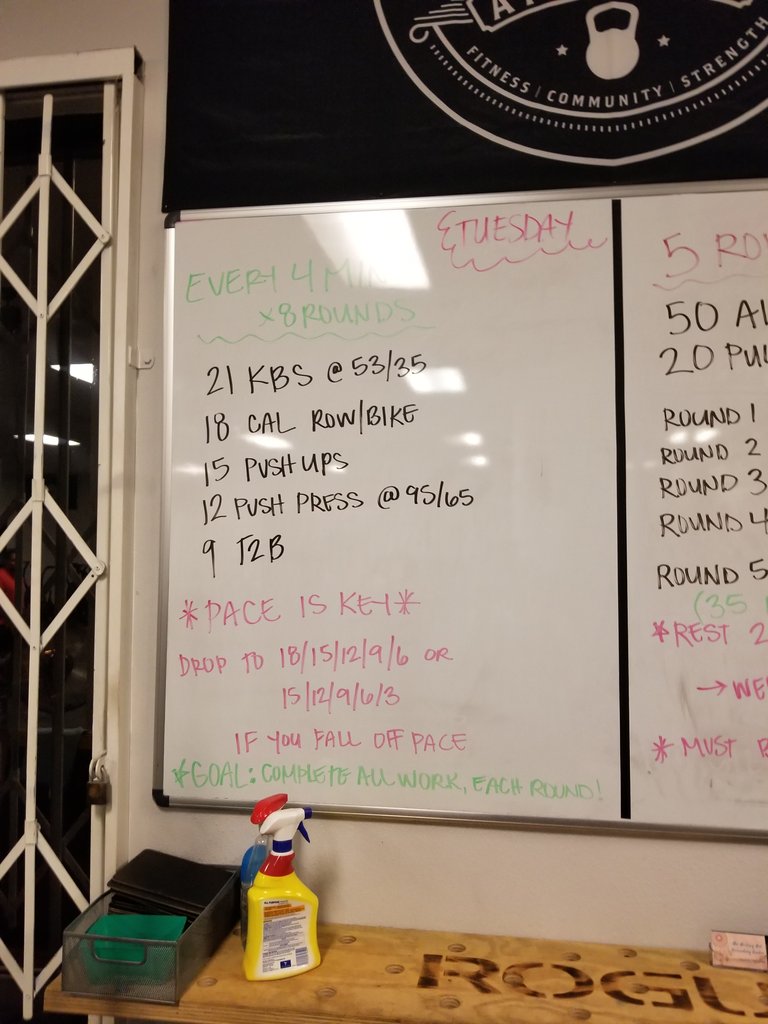 FITNESS | COMMUNITY | STRENGTH
TUESDAY
EVERY 4 MIN
x8 ROUNDS
21 KBS @ 53/35
18 CAL ROW/BIKE
15 PUSH UPS
12 PUSH PRESS @ 95/65
9 T2B
*PACE IS KEY*
DROP TO 18/15/12/9/6 OR
15/12/9/6/3
IF YOU FALL OFF PACE
*GOAL: COMPLETE ALL WORK, EACH ROUND!
5 RO
50 AL
20 PUL
ROUND 1
ROUND 2
ROUND 3
ROUND 4
ROUND 5
(35
*REST 2
→ WE
* MUST B
ROGU